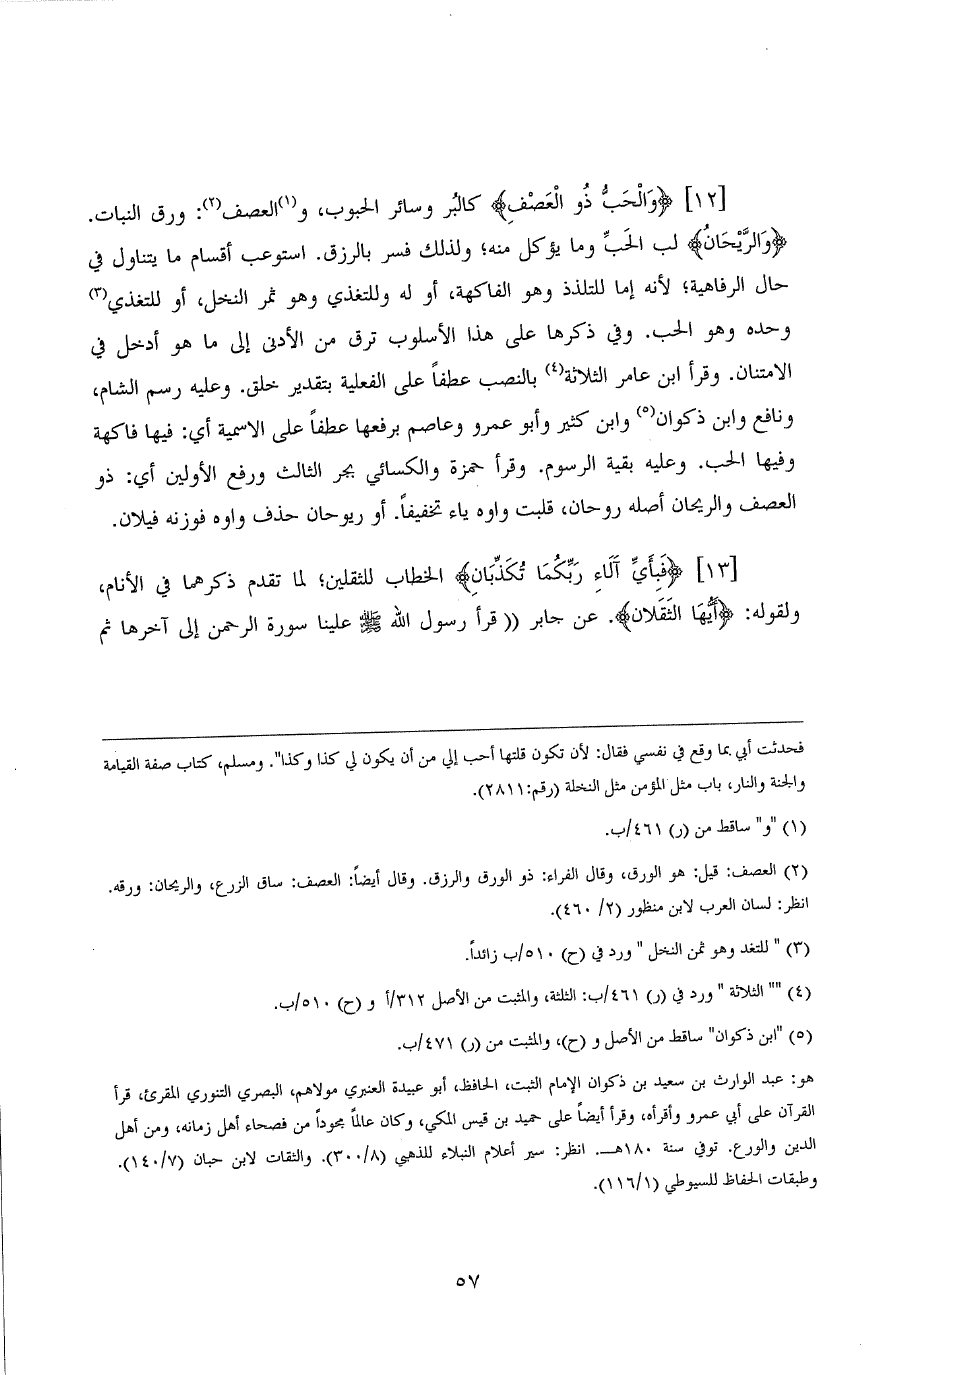 [١٢] ﴿وَالْحَبُّ ذُو الْعَصْفِ﴾ كالبُر وسائر الحبوب، و(١)العصف(٢): ورق النبات.
﴿وَالرَّيْحَانُ﴾ لب الحَبِّ وما يؤكل منه؛ ولذلك فسر بالرزق. استوعب أقسام ما يتناول في
حال الرفاهية؛ لأنه إما للتلذذ وهو الفاكهة، أو له وللتغذي وهو ثمر النخل، أو للتغذي(٣)
وحده وهو الحب. وفي ذكرها على هذا الأسلوب ترق من الأدنى إلى ما هو أدخل في
الامتنان. وقرأ ابن عامر الثلاثة(٤) بالنصب عطفاً على الفعلية بتقدير خلق. وعليه رسم الشام،
ونافع وابن ذكوان(٥) وابن كثير وأبو عمرو وعاصم برفعها عطفاً على الاسمية أي: فيها فاكهة
وفيها الحب. وعليه بقية الرسوم. وقرأ حمزة والكسائي بجر الثالث ورفع الأولين أي: ذو
العصف والريحان أصله روحان، قلبت واوه ياء تخفيفاً. أو ريوحان حذف واوه فوزنه فيلان.
[١٣] ﴿فَبِأَيِّ آَلَاءِ رَبِّكُمَا تُكَذِّبَانِ﴾ الخطاب للثقلين؛ لما تقدم ذكرهما في الأنام،
ولقوله: ﴿أَيُّهَا الثَّقَلَان﴾. عن جابر (( قرأ رسول الله ﷺ علينا سورة الرحمن إلى آخرها ثم
فحدثت أبي بما وقع في نفسي فقال: لأن تكون قلتها أحب إلي من أن يكون لي كذا وكذا". ومسلم، كتاب صفة القيامة
والجنة والنار، باب مثل المؤمن مثل النخلة (رقم:٢٨١١).
(١) "و" ساقط من (ر) ٤٦١/ب.
(٢) العصف: قيل: هو الورق، وقال الفراء: ذو الورق والرزق. وقال أيضاً: العصف: ساق الزرع، والريحان: ورقه.
انظر: لسان العرب لابن منظور (٢/ ٤٦٠).
(٣) " للتغد وهو ثمن النخل " ورد في (ح) ٥١٠/ب زائداً.
(٤) "" الثلاثة " ورد في (ر) ٤٦١/ب: الثلثة، والمثبت من الأصل ٣١٢/أ و (ح) ٥١٠/ب.
(٥) "ابن ذكوان" ساقط من الأصل و (ح)، والمثبت من (ر) ٤٧١/ب.
هو: عبد الوارث بن سعيد بن ذكوان الإمام الثبت، الحافظ، أبو عبيدة العنبري مولاهم، البصري التنوري المقرئ، قرأ
القرآن على أبي عمرو وأقرأه، وقرأ أيضاً على حميد بن قيس المكي، وكان عالماً مجوداً من فصحاء أهل زمانه، ومن أهل
الدين والورع. توفي سنة ١٨٠هـ. انظر: سير أعلام النبلاء للذهبي (٣٠٠/٨). والثقات لابن حبان (١٤٠/٧).
وطبقات الحفاظ للسيوطي (١١٦/١).
٥٧